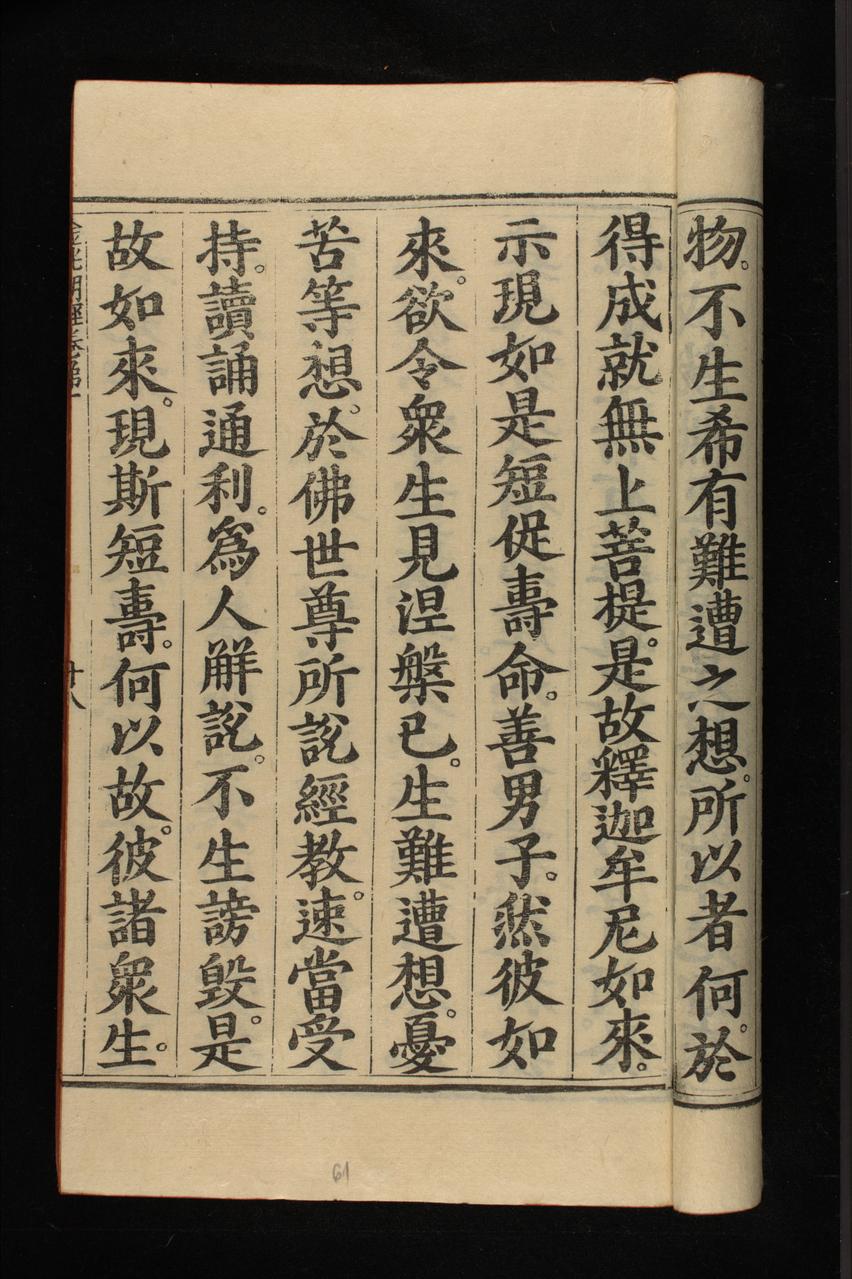 物。不生希有難遭之想。所以者何。於
得成就無上菩提。是故釋迦牟尼如來。
示現如是短促壽命。善男子。然彼如
來。欲令眾生見涅槃已。生難遭想。憂
苦等想。於佛世尊所說經教。速當受
持。讀誦通利。為人解說。不生謗毀。是
故如來。現斯短壽。何以故。彼諸眾生。
金光明經卷第一
廿八
61